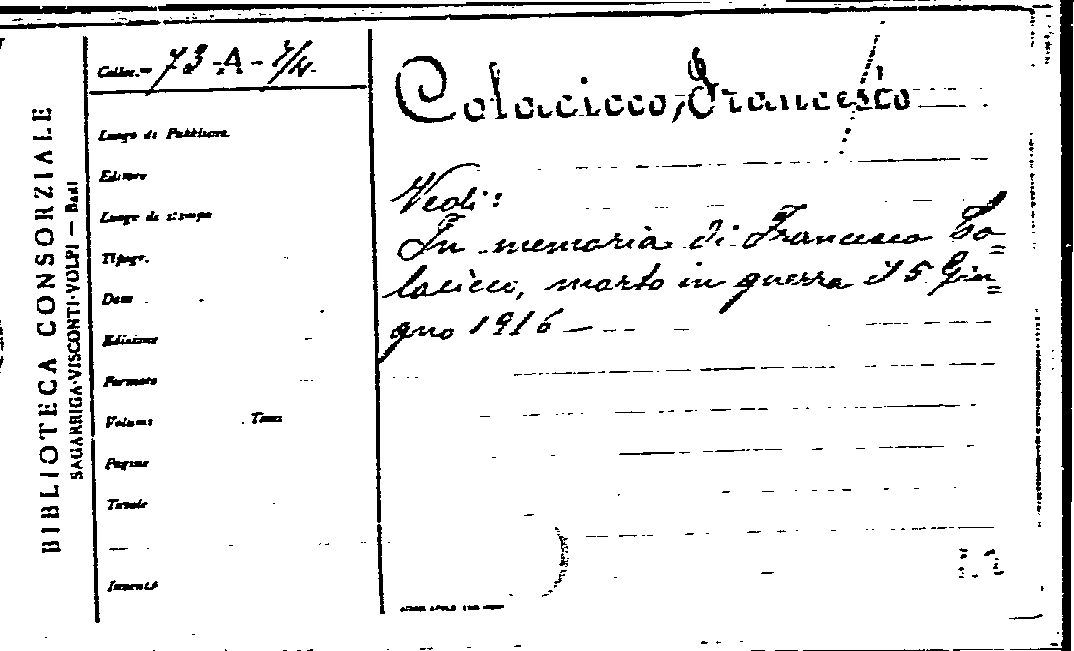 BIBLIOTECA CONSORZIALE
SAGARRIGA-VISCONTI-VOLPI — BARI
Colloc.ne 73-A-7/4.
Luogo di Pubblicaz.
Editore
Luogo di stampa
Tipogr.
Data
Edizione
Formato
Volumi Tomi
Pagine
Tavole
Inserto
Colacicco, Francesco
Vedi:
In memoria di Francesco Co=
lacicco, morto in guerra il 5 Giu=
gno 1916 —